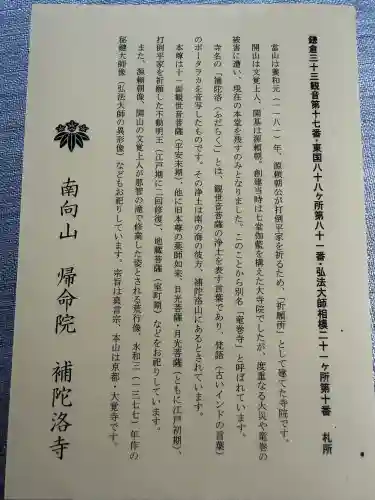 鎌倉三十三観音第十七番・東国八十八ヶ所第八十一番・弘法大師相模二十一ヶ所第十番　札所
当山は養和元（一一八一）年、源頼朝公が打倒平家を祈るため、「祈願所」として建てた寺院です。
開山は文覚上人、開基は源頼朝。創建当時は七堂伽藍を構えた大寺院でしたが、度重なる火災や竜巻の
被害に遭い、現在の本堂を残すのみとなりました。このことから別名「竜巻寺」と呼ばれています。
寺名の「補陀洛（ふだらく）」とは、観世音菩薩の浄土を表す言葉であり、梵語（古いインドの言葉）
のポータラカを音写したものです。その浄土は南の海の彼方、補陀洛山にあるとされています。
本尊は十一面観世音菩薩（平安末期）、他に旧本尊の薬師如来、日光菩薩・月光菩薩（ともに江戸初期）、
打倒平家を祈願した不動明王（江戸期に二回修復）、地蔵菩薩（室町期）などをお祀りしています。
また、源頼朝像、開山の文覚上人が那智の滝で修業した姿とされる荒行像、永和三（一三七七）年作の
秘鍵大師像（弘法大師の異形像）などもお祀りしています。宗旨は真言宗、本山は京都・大覚寺です。
南向山　帰命院　補陀洛寺